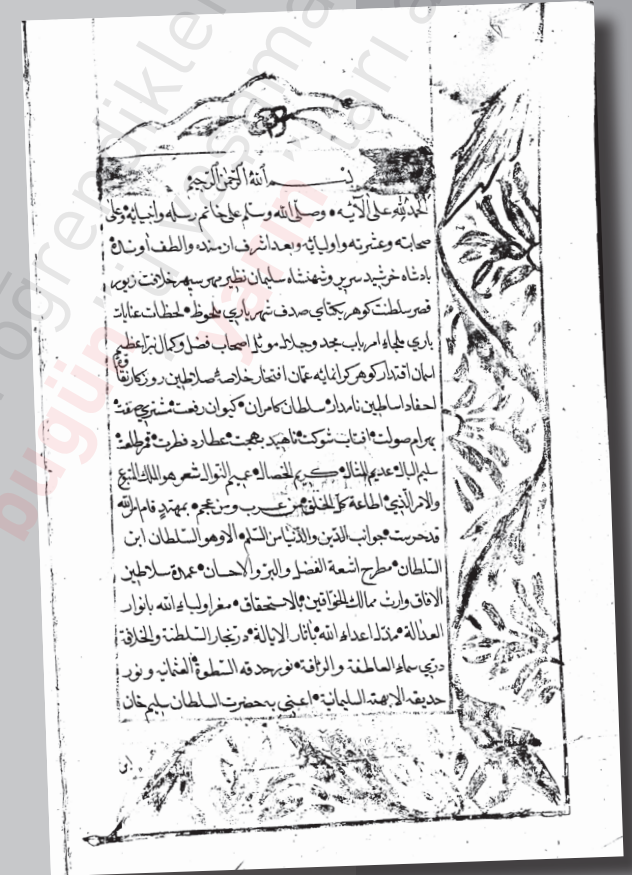 بسم الله الرحمن الرحيم
الحمد لله على آلائه • وصلى الله وسلم على خاتم رسله وانبيائه • وعلى
صحابته وعشرته واوليائه وبعد اشرف از سنده والطف اونده •
بادشاه خرشيد سرير وشهنشاه سليمان نظير مهر سپهر خلافت زيور
قصر سلطنت كوهر يكتاي صدف شهرياري ملحوظ • لحظات عنايات
باري ملجاء ارباب مجد وجلال موئل اصحاب فضل وكمال نير اعظم
اسمان اقتدار كوهر كرانمايه عمان افتخار خلاصه صلاطين روزكار نقاوه
احفاد اساطين نامدار • سلطان كامران • كيوان رفعت • مشتري
بهرام صولت • افتاب شوكت • ناهيد بهجت • عطارد فطرت • قمر طلعت •
سليم البال • عديم المثال • كريم الخصال • عميم النوال شعر هو الملك
والامر الذي • اطاعة كل الخلق من عرب ومن عجم • بمهتد قام امر الله
قد حرست • جوانب الدين والدنيا من الثلم • الا وهو السلطان ابن
السلطان • مطرح اشعة الفضل والبر والاحسان • عمدة سلاطين
الافاق وارث ممالك الخواقين • بالاستحقاق • مغر اولياء الله بانوار
العدالة • مذل اعداء الله • باثار الايالة • در بحار السلطنة والخلافة
دري سماء العاطفة والرافة • نور حدقه السطوة العثمانيه ونور
حديقه الابهة السليمانية • اعني به حضرت السلطان سليم خان
ابن
öğrendikler
bugün
yarın